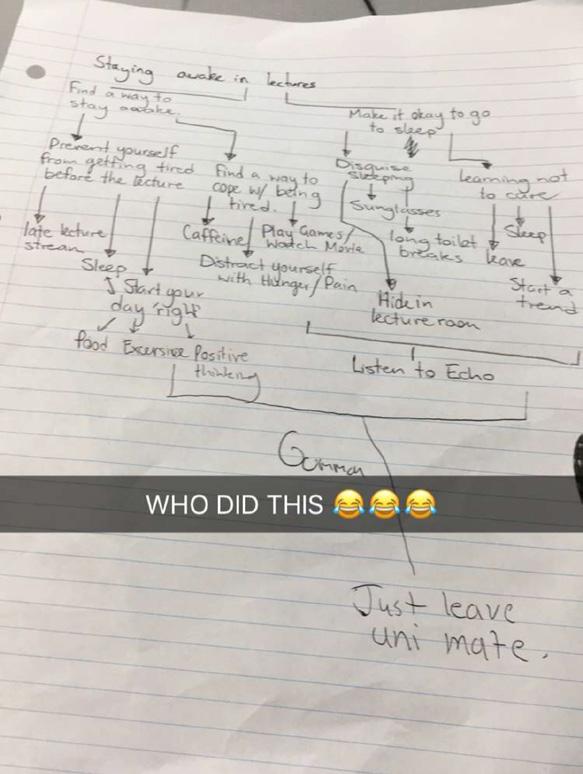 Staying awake in lectures
Find a way to
stay awake.
Make it okay to go
to sleep
Prevent yourself
from getting tired
before the lecture
Find a way to
cope w/ being
tired.
Disguise
sleeping
learning not
to care
late lecture
stream
Sleep
Start your
day right
Food Excersise Positive
thinking
Caffeine
Play Games/
Watch Movie
Distract yourself
with Hunger/Pain
Sunglasses
long toilet
breaks
Hide in
lecture room
leave
Sleep
Start a
trend
Listen to Echo
Common
WHO DID THIS 😂😂😂
Just leave
uni mate.